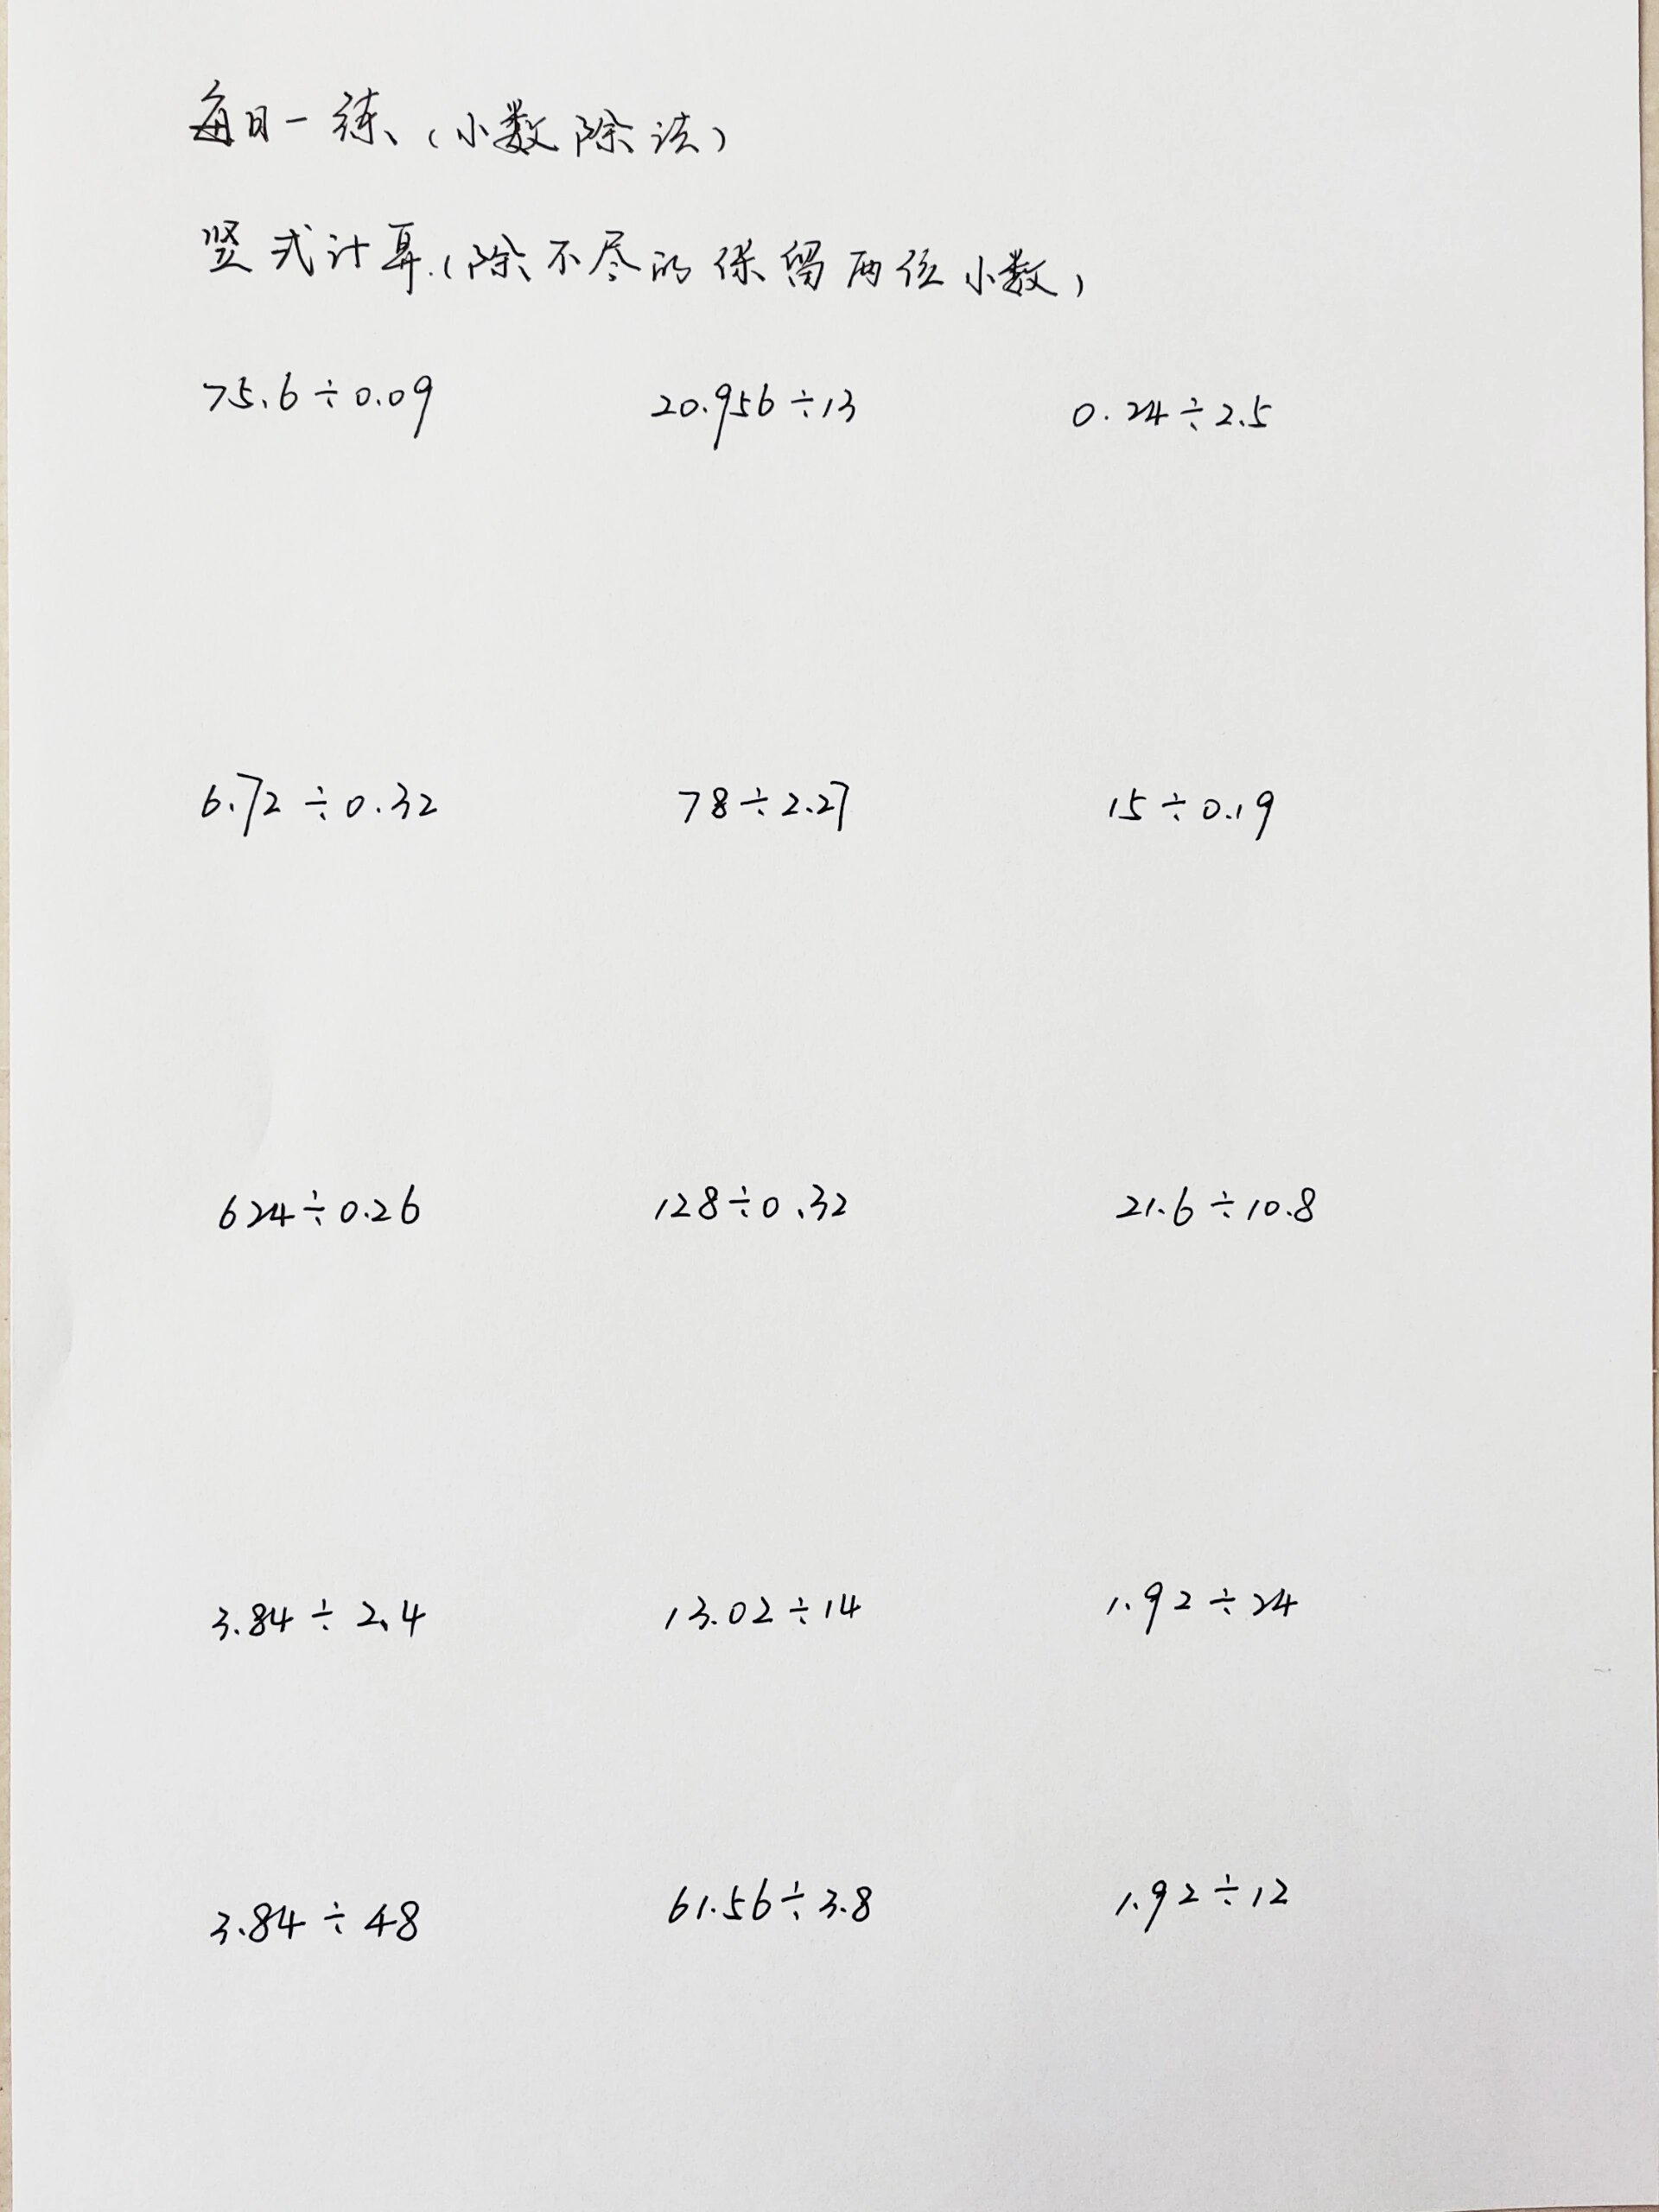 每日一练、(小数除法)
竖式计算.(除不尽的保留两位小数)
75.6÷0.09 20.956÷13 0.24÷2.5
6.72÷0.32 78÷2.27 15÷0.19
624÷0.26 128÷0.32 21.6÷10.8
3.84÷2.4 13.02÷14 1.92÷24
3.84÷48 61.56÷3.8 1.92÷12